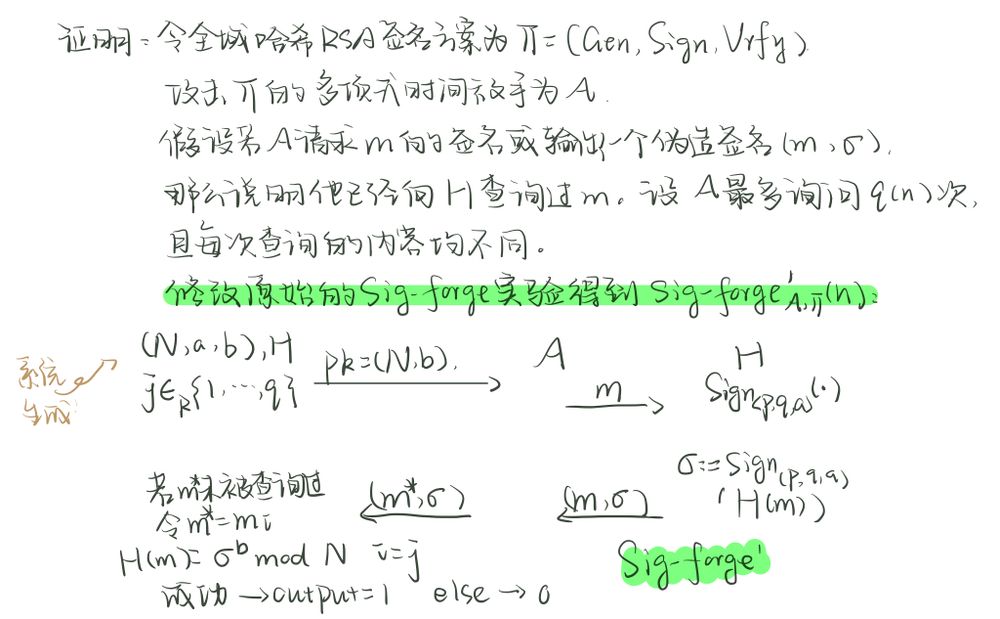 证明：令全域哈希RSA签名方案为 Π=(Gen, Sign, Vrfy)
攻击Π的多项式时间敌手为A.
假设若A请求m的签名或输出一个伪造签名(m,σ),
那么说明他已经向H查询过m。设A最多询问q(n)次,
且每次查询的内容均不同。
修改原始的Sig-forge实验得到 Sig-forge'A,Π(n):
系统生成
(N,a,b),H
j∈R{1,…,q}
pk=(N,b).
A
m
H
Sign(p,q,a)(·)
若m*未被查询过
令m*=mi
(m*,σ)
(m,σ)
σ:=Sign(p,q,a)
(H(m))
H(m)=σ^b mod N i=j
成功→output=1 else→0
Sig-forge'